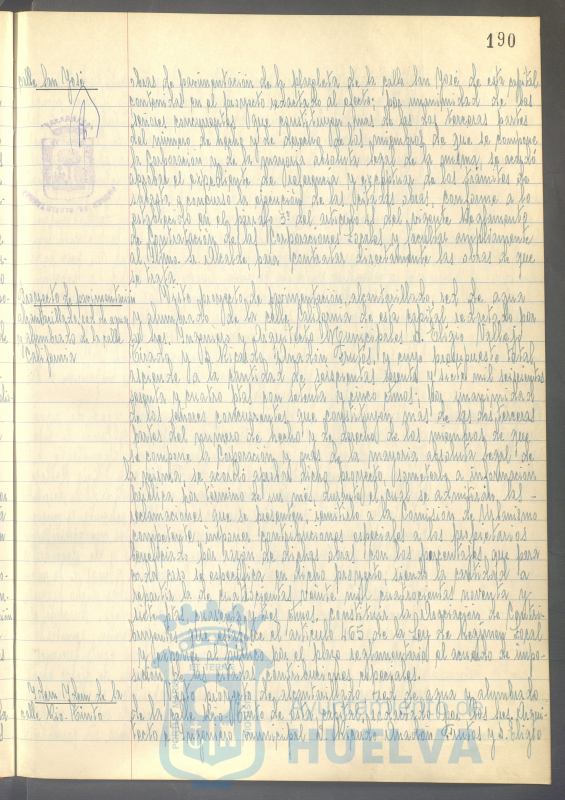 190
calle San José
obras de pavimentación de la plazoleta de la calle San José de esta capital
contenidas en el proyecto redactado al efecto; por unanimidad de los
señores concurrentes que constituyen más de las dos terceras partes
del número de hecho y de derecho de los miembros de que se compone
la Corporación y de la mayoría absoluta legal de la misma se acordó
aprobar el expediente de referencia y exceptuar de los trámites de
subasta y concurso la ejecución de las citadas obras, conforme a lo
establecido en el párrafo 3º del artículo 41 del vigente Reglamento
de Contratación de las Corporaciones Locales y facultar ampliamente
al Iltmo. Sr. Alcalde, para contratar directamente las obras de que
se trata.
Proyecto de pavimentación
alcantarillado, red de agua
y alumbrado de la calle
California
Visto proyecto de pavimentación, alcantarillado, red de agua
y alumbrado de la calle California de esta capital redactado por
los Sres. Ingeniero y Arquitecto Municipales D. Eligio Vallejo
y D. Ricardo Anadón Frutos, y cuyo presupuesto total
asciende a la cantidad de seiscientas sesenta y siete mil seiscientas
sesenta y cuatro ptas con setenta y cinco ctmos; por unanimidad
de los señores concurrentes que constituyen más de las dos terceras
partes del número de hecho y de derecho de los miembros de que
se compone la Corporación y pues de la mayoría absoluta legal de
la misma, se acordó aprobar dicho proyecto, someterlo a información
pública por término de un mes, durante el cual se admitirán las
reclamaciones que se presenten, remitirlo a la Comisión de Urbanismo
competente, imponer contribuciones especiales a los propietarios
beneficiados por razón de dichas obras con los porcentajes que para
cada caso se especifica en dicho proyecto, siendo la cantidad a
repartir la de cuatrocientas veinte mil cuatrocientas noventa y
ptas. ctmos, constituir la Asociación de Contri-
buyentes que establece el artículo 465 de la Ley de Régimen Local
y exponer al público por el plazo reglamentario el acuerdo de impo-
sición de las citadas contribuciones especiales.
Idem Idem de la
calle Rio-Tinto
Visto proyecto de alcantarillado, red de agua y alumbrado
de la calle Rio-Tinto de esta capital redactado por los Sres. Arqui-
tecto e Ingeniero municipales D. Ricardo Anadón Frutos y D. Eligio
Ayuntamiento de
HUELVA